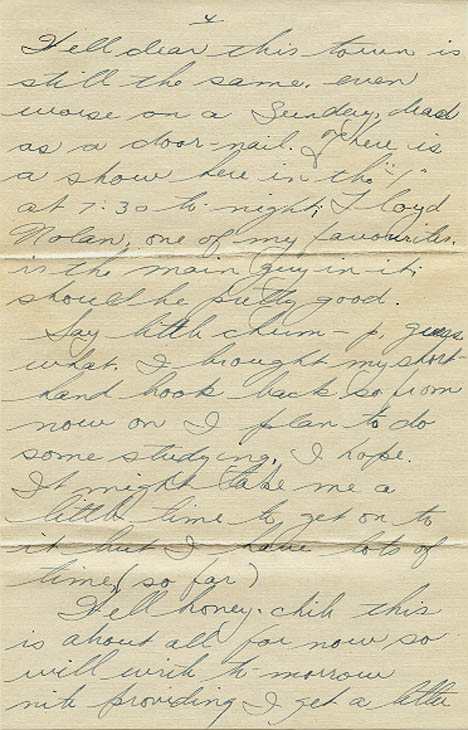 4
Well dear this town is
still the same. even
worse on a Sunday, dead
as a door-nail. There is
a show here in the "Y"
at 7:30 to-night; Lloyd
Nolan, one of my favourites.
is the main guy in it;
should be pretty good.
Say little chum-p, guess
what. I brought my short
hand book back so from
now on I plan to do
some studying, I hope.
It might take me a
little time to get on to
it but I have lots of
time, (so far)
Well honey-chile this
is about all for now so
will write to-morrow
nite providing I get a letter